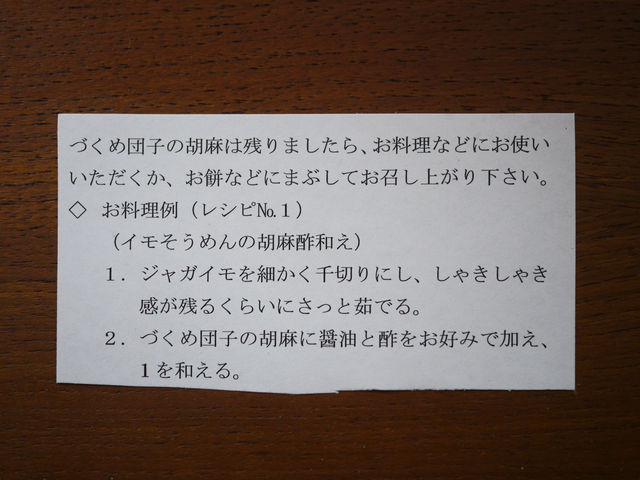 づくめ団子の胡麻は残りましたら、お料理などにお使い
いただくか、お餅などにまぶしてお召し上がり下さい。
◇ お料理例（レシピ№１）
（イモそうめんの胡麻酢和え）
１．ジャガイモを細かく千切りにし、しゃきしゃき
感が残るくらいにさっと茹でる。
２．づくめ団子の胡麻に醤油と酢をお好みで加え、
１を和える。